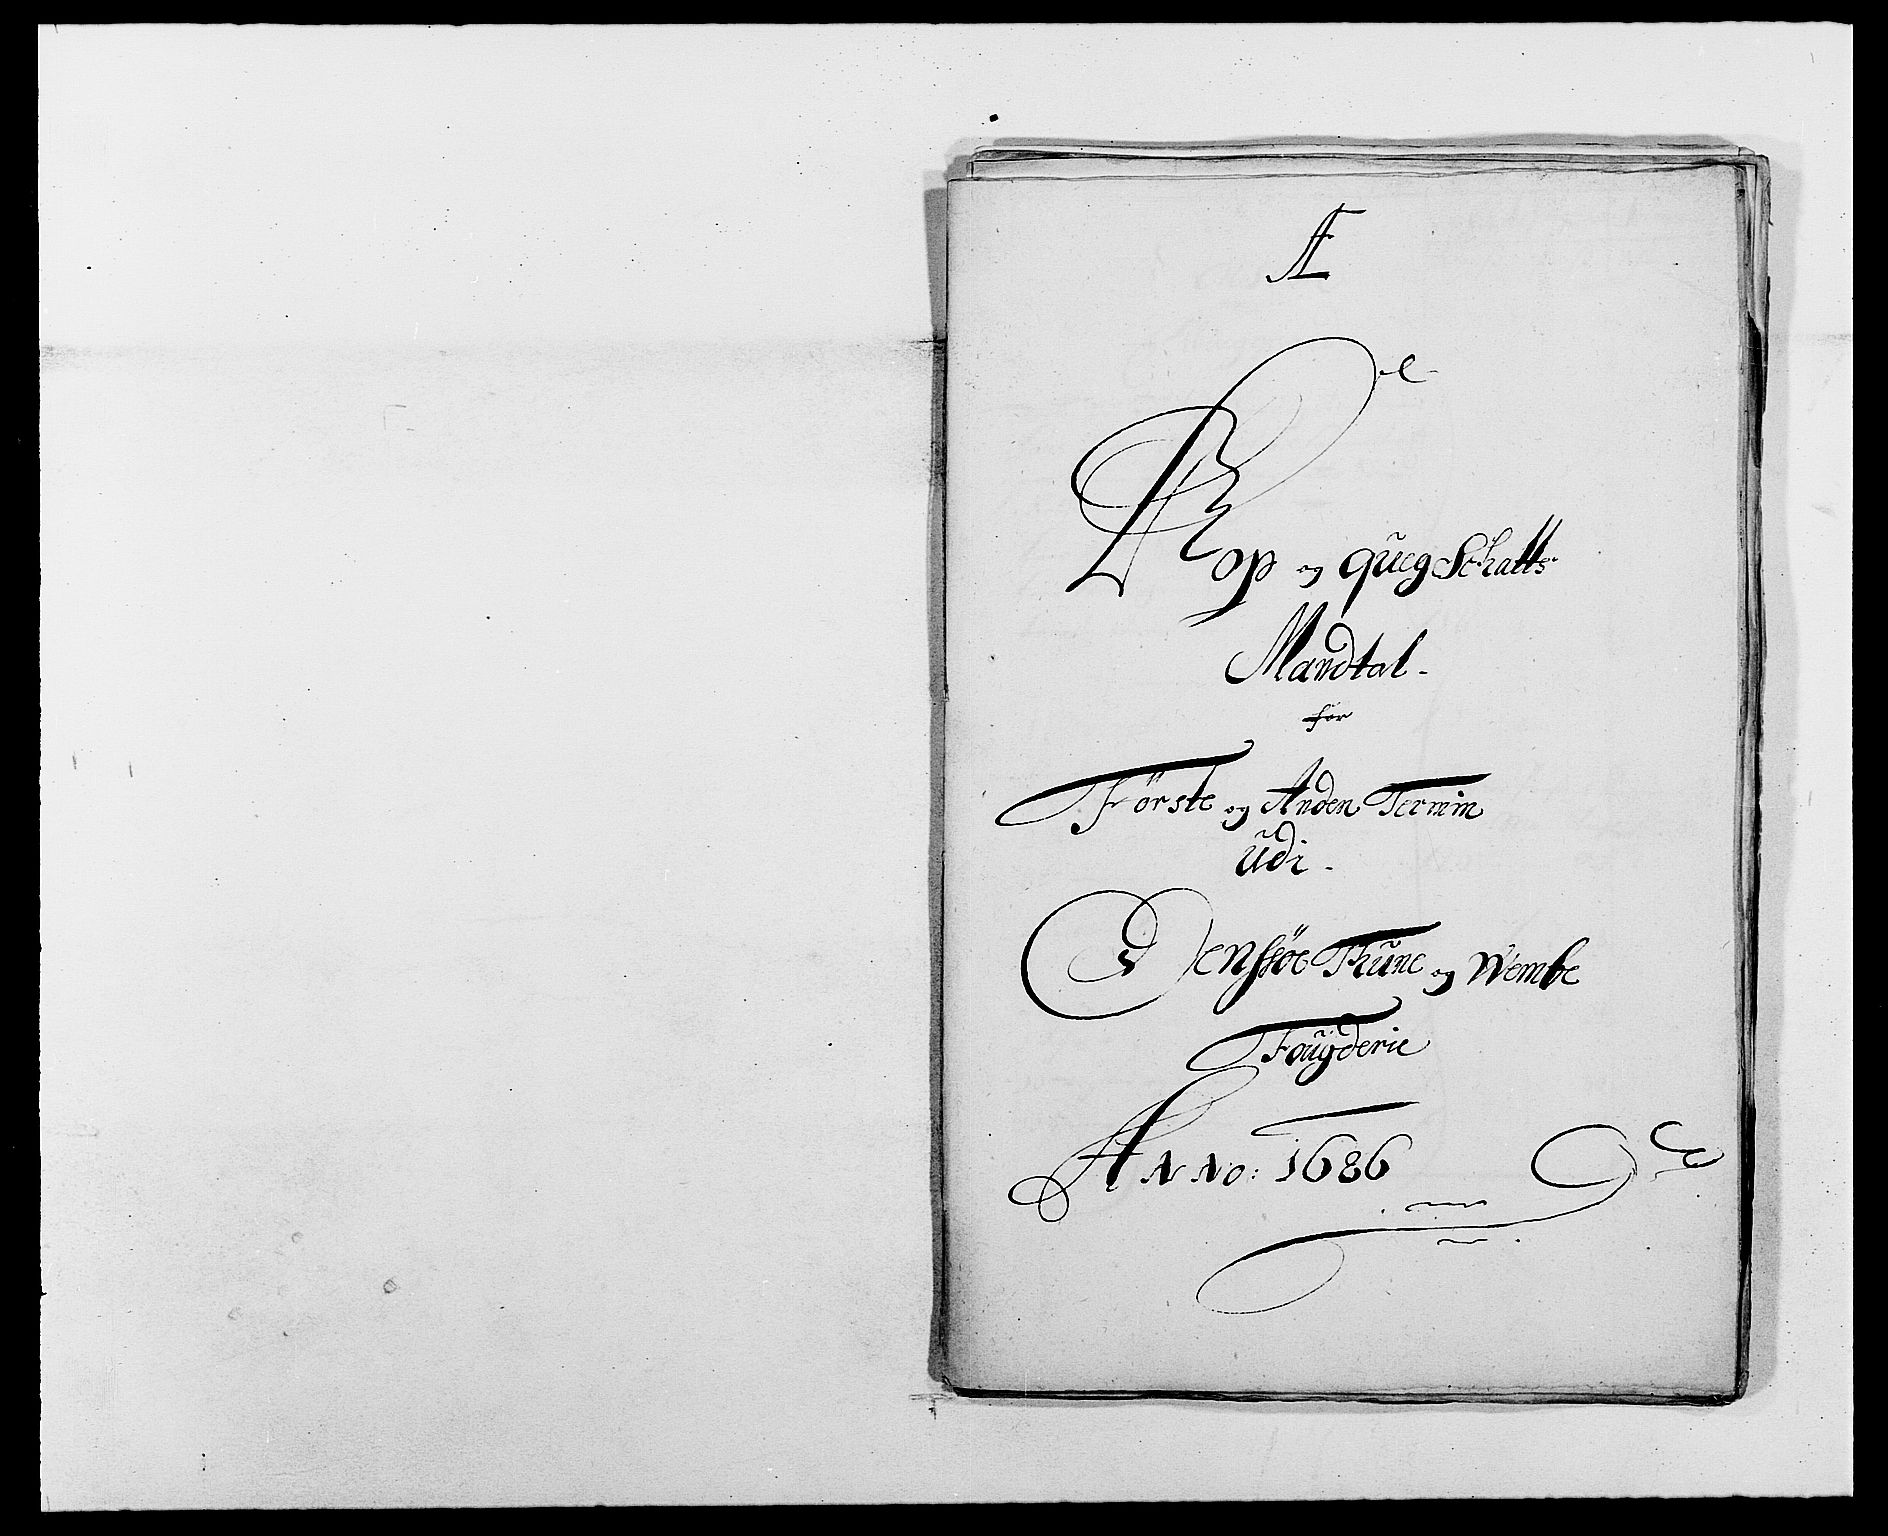 Æ
Kop og quegSchatts
Mandtal-
for
Förste og Anden Termin
Udi-
Jenssöe Thune og Wembe
Fougderie
ANNo: 1686